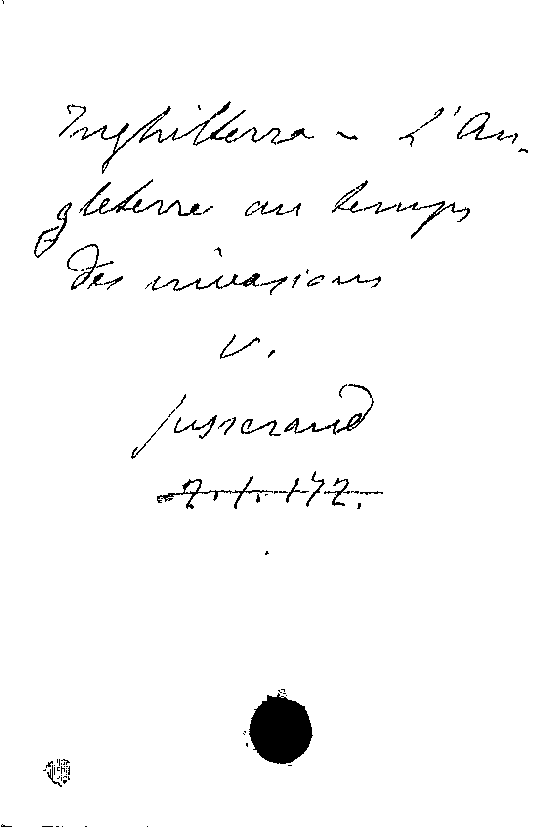 Inghilterra - L'An-
gleterre au temps
des invasions
v.
Jusserand
7. 1. 172.